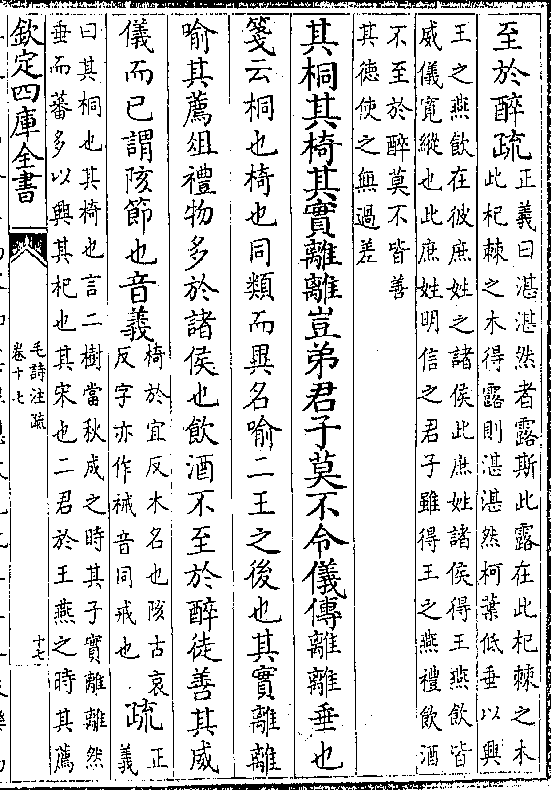 至於醉疏
正義曰湛湛然者露斯此露在此杞棘之木
此杞棘之木得露則湛湛然柯葉低垂以興
王之燕飲在彼庶姓之諸侯此庶姓諸侯得王燕飲皆
威儀寛縱也此庶姓明信之君子雖得王之燕禮飲酒
不至於醉莫不皆善
其德使之無過差
其桐其椅其實離離豈弟君子莫不令儀傳離離垂也
箋云桐也椅也同類而異名喻二王之後也其實離離
喻其薦俎禮物多於諸侯也飲酒不至於醉徒善其威
儀而已謂陔節也音義
椅於宜反木名也陔古哀
反字亦作祴音同戒也
疏
正
義
曰其桐也其椅也言二樹當秋成之時其子實離離然
垂而蕃多以興其杞也其宋也二君於王燕之時其薦
欽定四庫全書
毛詩注疏
卷十七
十七